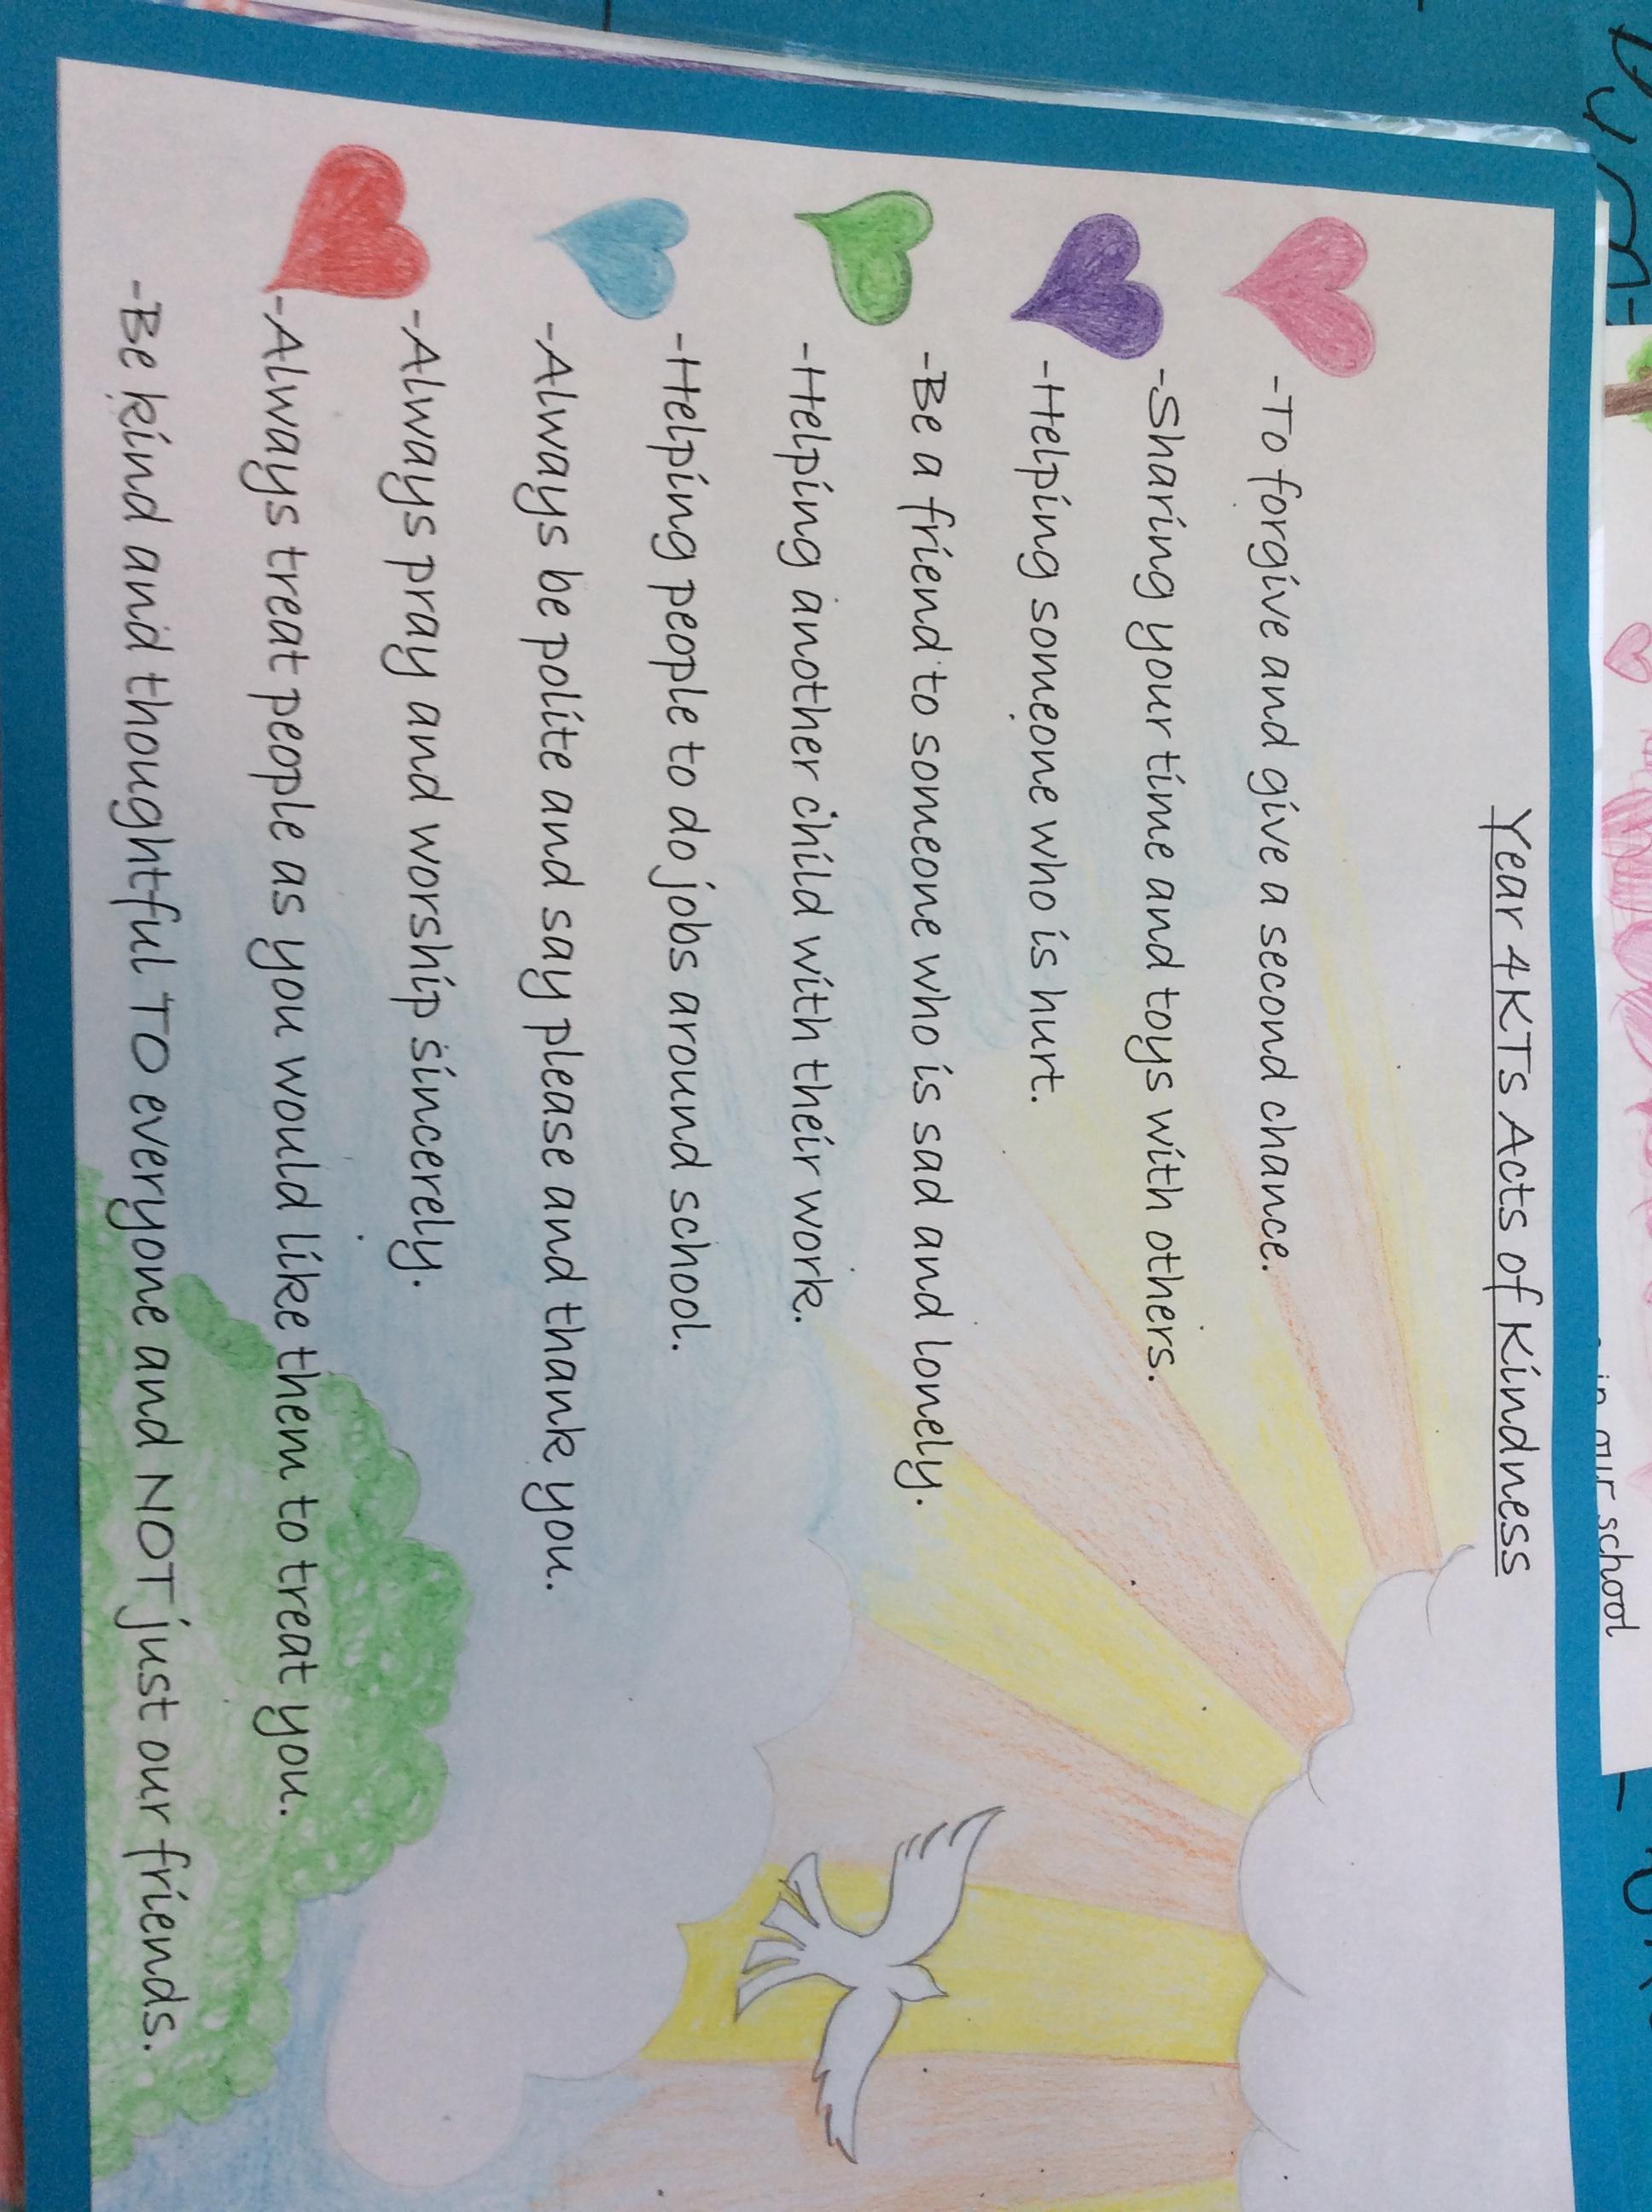 Year 4KTs Acts of Kindness
-To forgive and give a second chance.
-Sharing your time and toys with others.
-Helping someone who is hurt.
-Be a friend to someone who is sad and lonely.
-Helping another child with their work.
-Helping people to do jobs around school.
-Always be polite and say please and thank you.
-Always pray and worship sincerely.
-Always treat people as you would like them to treat you.
-Be kind and thoughtful TO everyone and NOT just our friends.
in our school